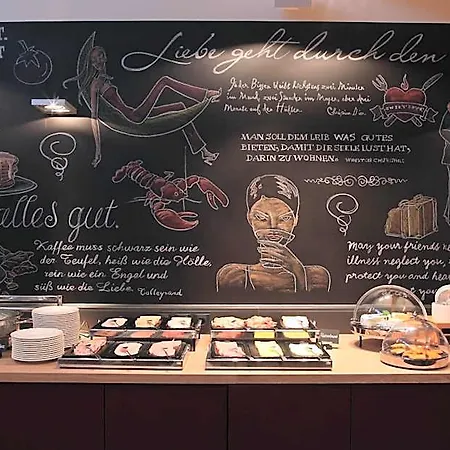 T.
T
Liebe geht durch den
Jeder Bissen bleibt höchstens zwei Minuten
im Mund, zwei Stunden im Magen, aber drei
Monate auf den Hüften.
Christian Dior
MAN SOLL DEM LEIB WAS GUTES
BIETEN, DAMIT DIE SEELE LUST HAT,
DARIN ZU WOHNEN.
WINSTON CHURCHILL
alles gut.
Kaffee muss schwarz sein wie
der Teufel, heiß wie die Hölle,
rein wie ein Engel und
süß wie die Liebe. Talleyrand
MAY your friends
illness neglect you,
protect you and hea
t you